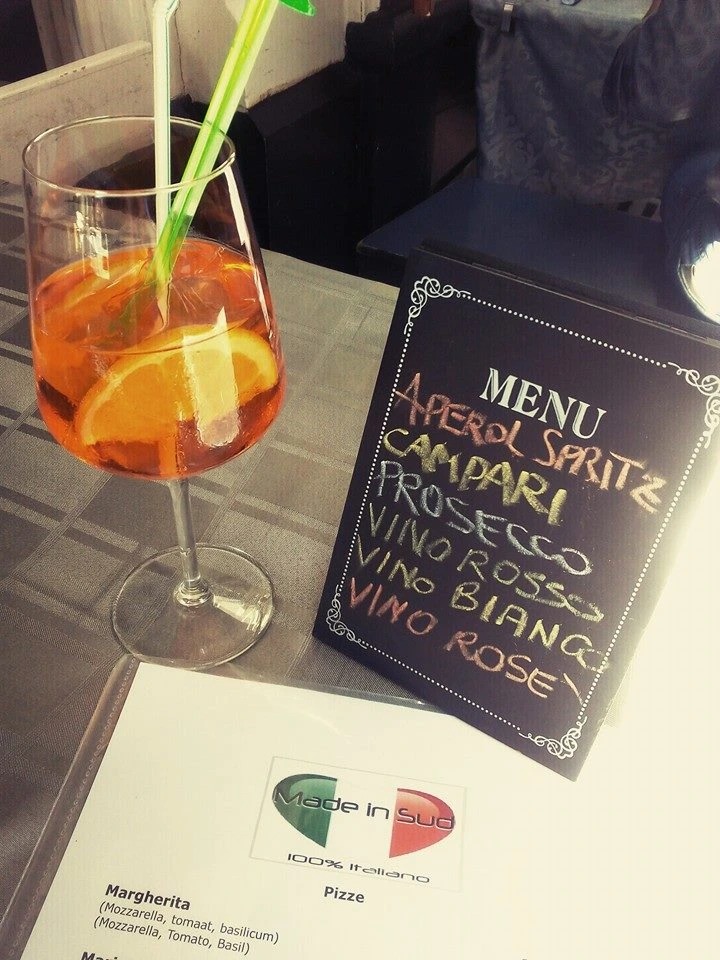 MENU
APEROL SPRITZ
CAMPARI
PROSECCO
VINO ROSSO
VINO BIANCO
VINO ROSE'
Made in Sud
100% Italiano
Pizze
Margherita
(Mozzarella, tomaat, basilicum)
(Mozzarella, Tomato, Basil)